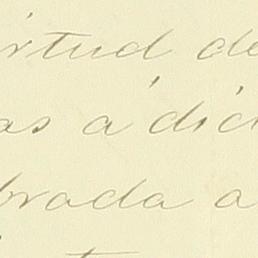 irtud de
as á dic
brada a